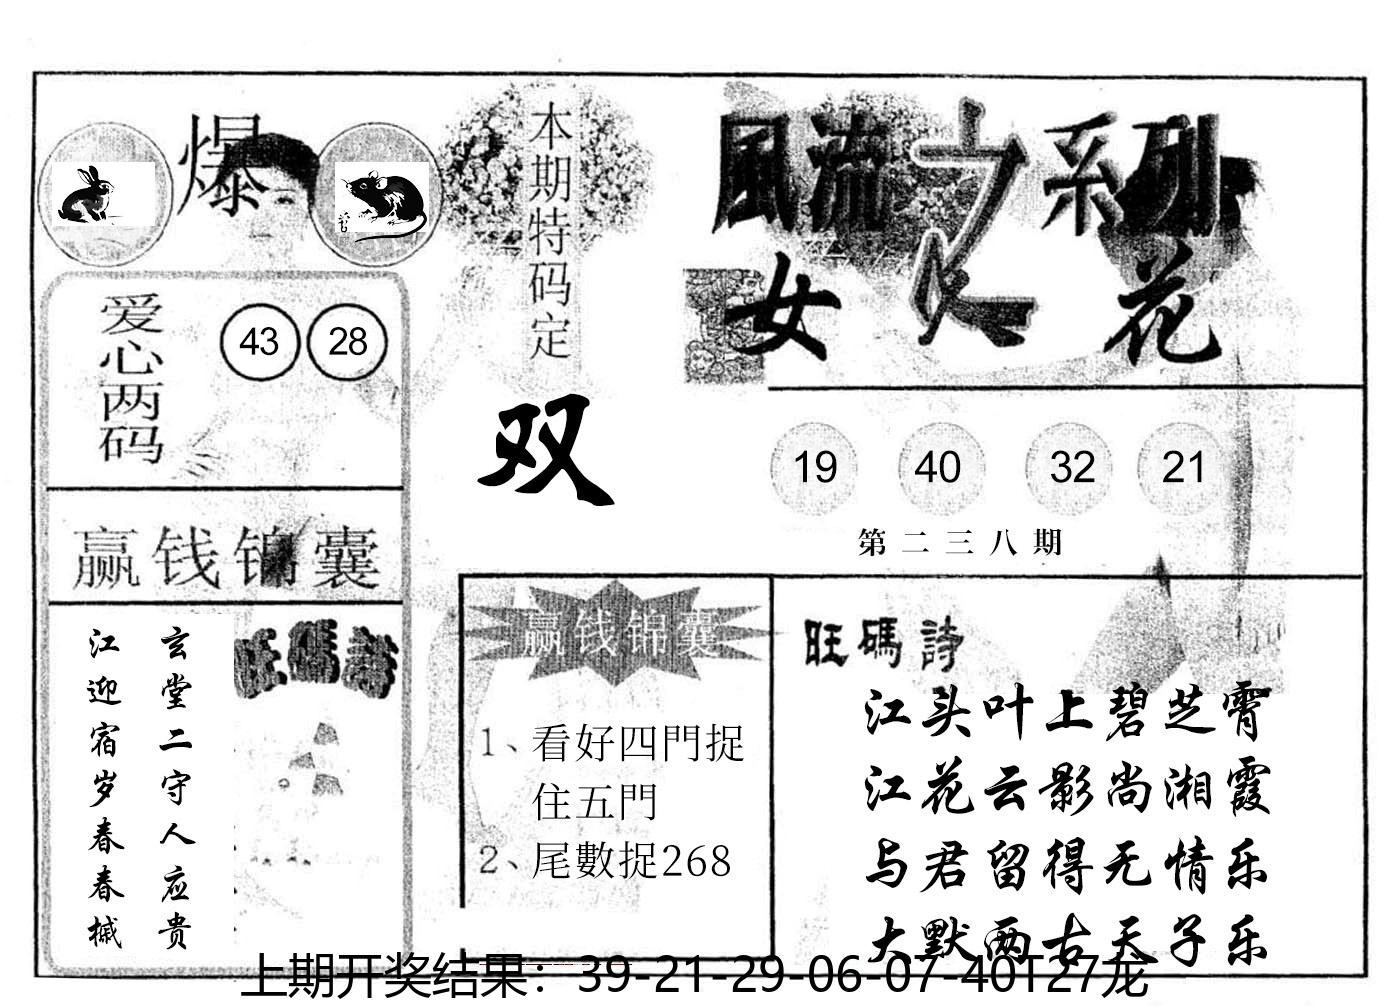 爆
本期特码定
双
風流之系列
女人花
爱心两码
43 28
19 40 32 21
第二三八期
赢钱锦囊
玄堂二守人应贵
江迎宿岁春春槭
旺碼詩
赢钱锦囊
1、看好四門捉
住五門
2、尾數捉268
旺碼詩
江头叶上碧芝霄
江花云影尚湘霞
与君留得无情乐
大默两古天子乐
上期开奖结果：39-21-29-06-07-40T27龙